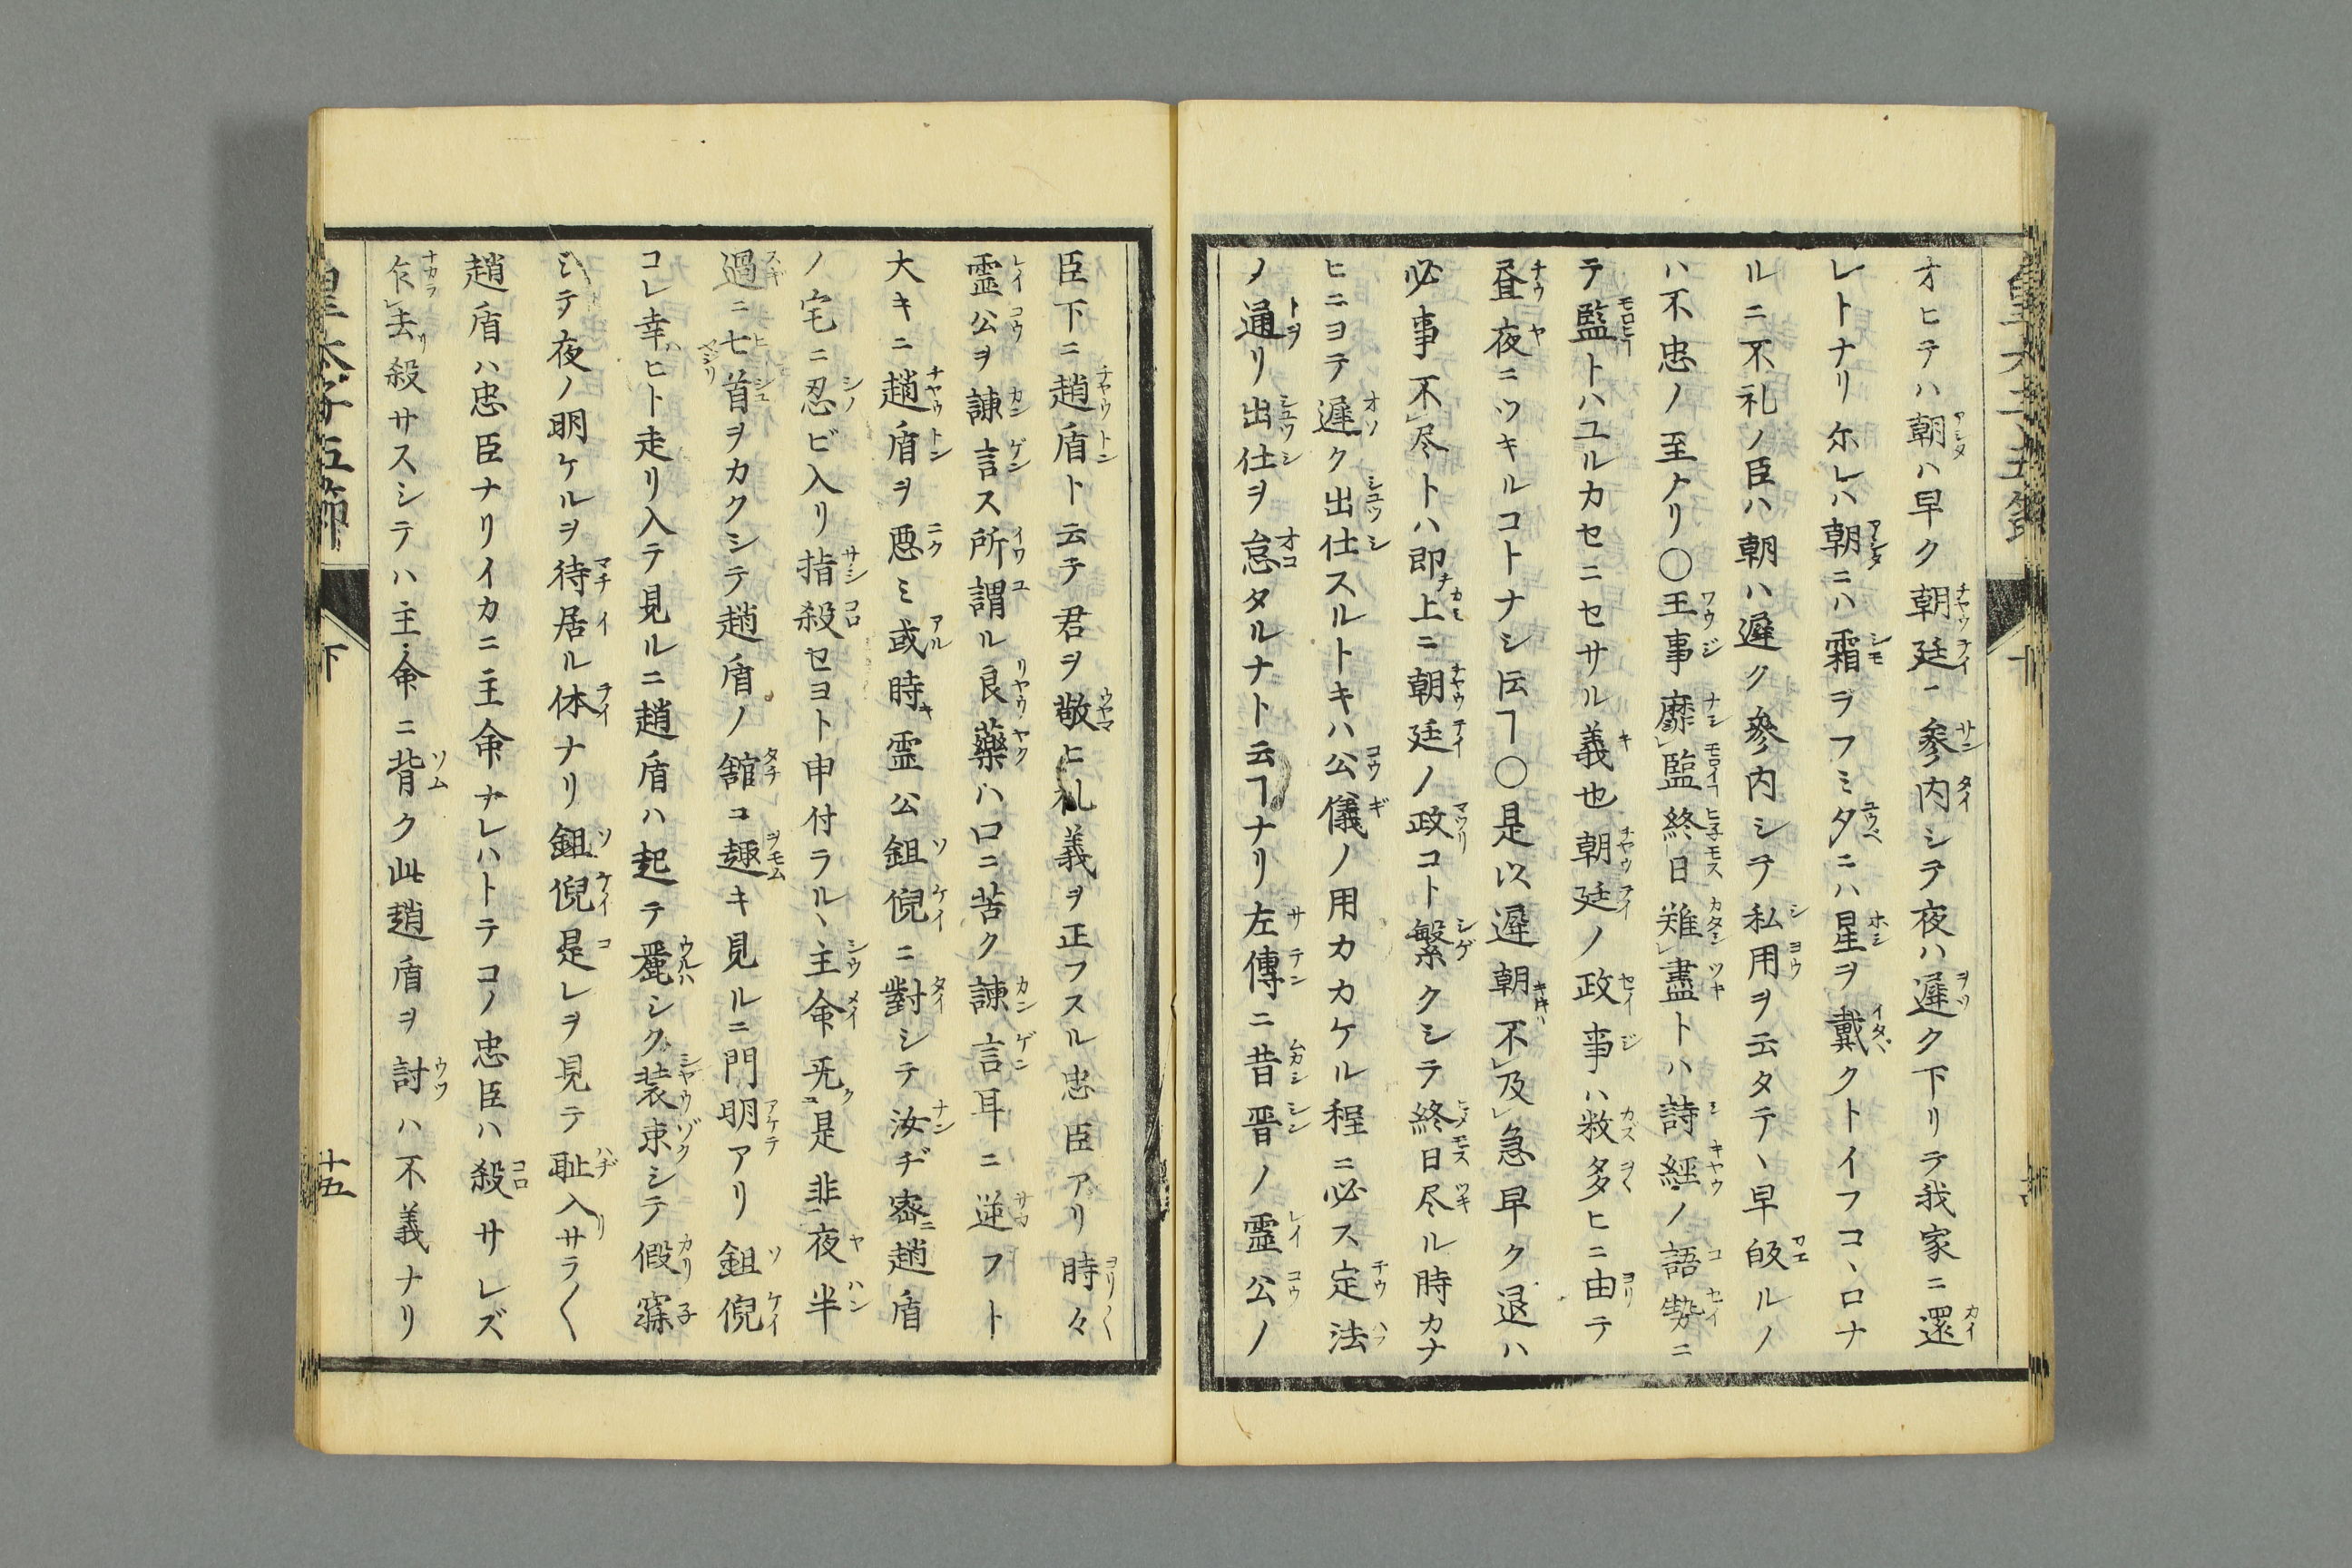 オヒテハ朝ハ早ク朝廷ニ參内シテ夜ハ遲ク下リテ我家ニ還
レトナリ尓レハ朝ニハ霜ヲフミ夕ニハ星ヲ戴クトイフコヽロナ
ルニ不礼ノ臣ハ朝ハ遲ク參内シテ私用ヲ云タテヽ早皈ルノ
ハ不忠ノ至ナリ〇王事靡監終日難盡トハ詩經ノ語勢ニ
テ監トハユルカセニセサル義也朝廷ノ政事ハ数多ヒニ由テ
昼夜ニツキルコトナシ𪜈ヿ〇是以遲朝不及急早ク退ハ
必事不尽トハ即上ニ朝廷ノ政コト繁クシテ終日尽ル時カナ
ヒニヨテ遲ク出仕スルトキハ公儀ノ用カカケル程ニ必ス定法
ノ通リ出仕ヲ怠タルナト云ヿナリ左傳ニ昔晋ノ靈公ノ
臣下ニ趙盾ト云テ君ヲ敬ヒ礼義ヲ正フスル忠臣アリ時々
霊公ヲ諌言ス所謂ル良藥ハ口ニ苦ク諌言耳ニ逆フト
大キニ趙盾ヲ悪ミ或時霊公鉏倪ニ對シテ汝ヂ密ニ趙盾
ノ宅ニ忍ビ入リ指殺セヨト申付ラルヽ主命旡是非夜半
過ニ七首ヲカクシテ趙盾ノ舘コ趣キ見ルニ門明アリ鉏倪
コレ幸ヒト走リ入テ見ルニ趙盾ハ起テ麗シク装束シテ假寐
シテ夜ノ明ケルヲ待居ル体ナリ鉏倪是レヲ見テ耻入サラ〱
趙盾ハ忠臣ナリイカニ主命ナレハトテコノ忠臣ハ殺サレズ
乍去殺サスシテハ主命ニ背ク此趙盾ヲ討ハ不義ナリ
皇太子五節
下
十五